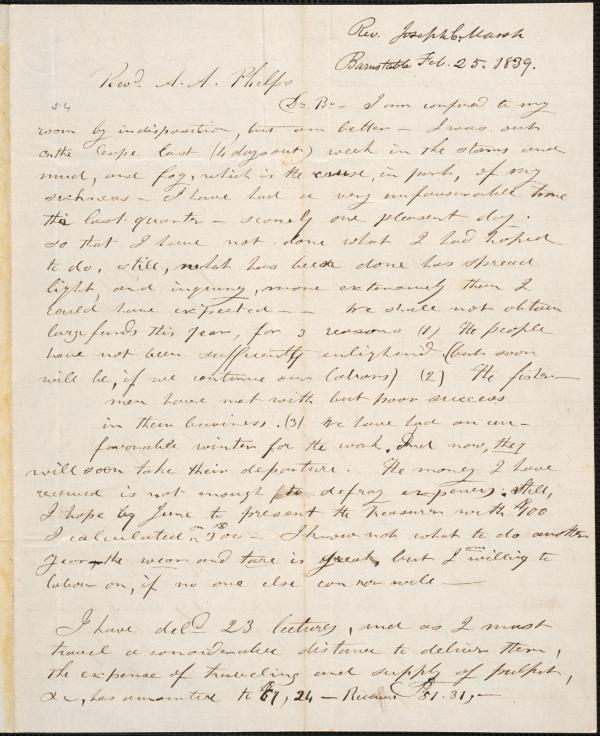 Rev. Joseph C. Marsh
Barnstable Feb. 25. 1839.
Revd. A. A. Phelps
54
Dr Br - I am confined to my
room by indisposition, but am better - I was out
on the Cape last (4 days out) week in the storms and
mud, and fog, which is the cause, in part, of my
sickness - I have had a very unfavourable time
the last quarter - scarcely one pleasent day.
so that I have not done what I had hoped
to do, still, what has been done has spread
light, and inquiry, more extensively than I
could have expected - - We shall not obtain
large funds this year, for 3 reasons (1) The people
have not been sufficiently enlighened (but soon
will be, if we continue our labors) (2) The fisher-
men have met with but poor success
in their business. (3) We have had an un-
favorable winter for the work. And now, they
will soon take their departure. The money I have
received is not enough to defray expenses. Still,
I hope by June to present the Treasurer with $100
I calculated on 300 - I know not what to do another
year - the wear and tare is great, but I am willing to
labour on, if no one else can nor will -
I have deld 23 lectures, and as I must
travel a considerable distance to deliver them,
the expense of traveling and supply of pulpit,
&c, has amounted to 67,24 - Receved $51.31,-